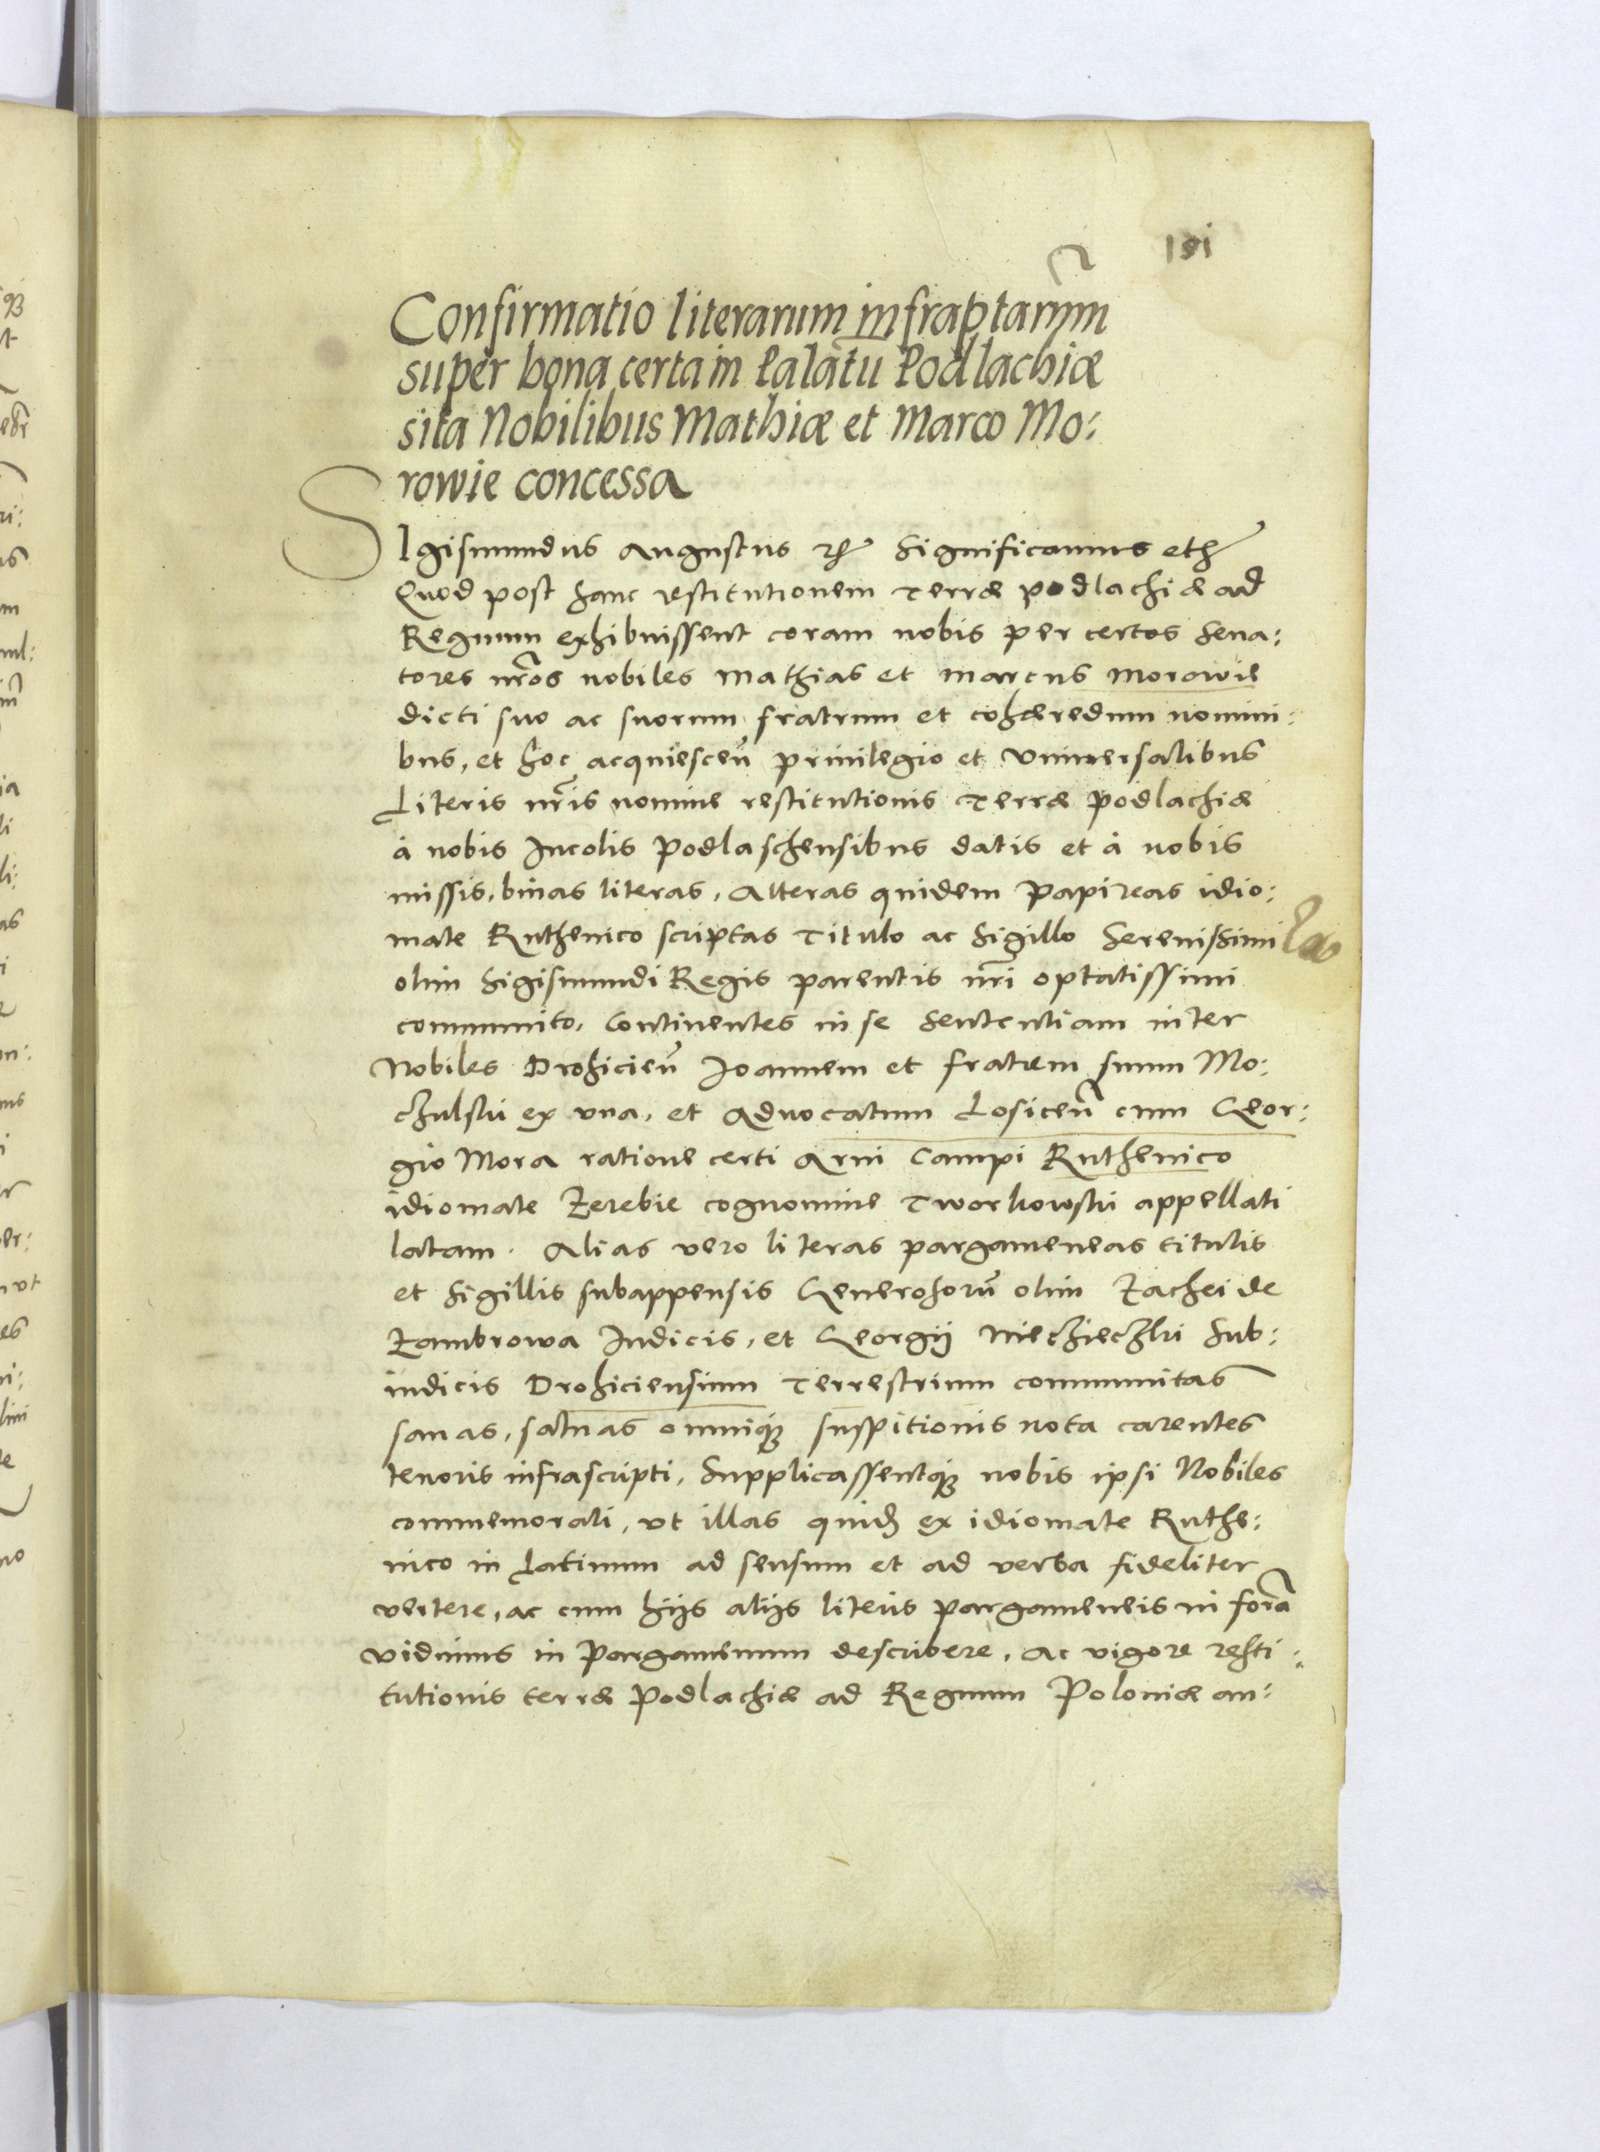 191
Confirmatio literarum infraptarum
super bona certa in Palatu Podlachiæ
sita Nobilibus Mathiæ et Marco Mo:
rowie concessa
SIgismundus Augustus rex Significamus etc
Quod post hanc restitutionem Terræ Podlachiæ ad
Regnum exhibuissent coram nobis per certos Sena:
tores nros nobiles Mathias et Marcus Morowie
dicti suo ac suorum fratrum et cohæredum nomini:
bus, et hoc acquiesceñ priuilegio et Vniuersalibus
Literis nris nomine restitutionis Terræ Podlachiæ
à nobis Incolis Podlaschensibus datis et à nobis
missis, binas literas, Alteras quidem Papireas idio:
mate Ruthenico scriptas Titulo ac Sigillo Serenissimi
olim Sigismundi Regis parentis nri optatissimi
communito, Continentes in se Sententiam inter
Nobiles Drohicieñ Joannem et fratrem suum Mo:
czulski ex vna, et Aduocatum Losiceñ cum Geor:
gio Mora ratione certi Arui Campi Ruthenico
idiomate Zerebie cognomine Tworkowski appellati
latam. Alias vero literas pargameneas titulis
et Sigillis subappensis Generosorũ olim Zachei de
Zambrowa Iudicis, et Georgij Nieczieczki Sub:
iudicis Drohiciensium Terrestrium communitas
sanas, saluas omniq3 suspitionis nota carentes
tenoris infrascripti, Supplicassentq3 nobis ipsi Nobiles
commemorati, vt illas quid ex idiomate Ruthe:
nico in Latinum ad sensum et ad verba fideliter
vertere, ac cum hijs alijs literis pargameneis in forã
vidimus in Pargamenum describere, Ac vigore resti:
tutionis terræ Podlachiæ ad Regnum Poloniæ an: